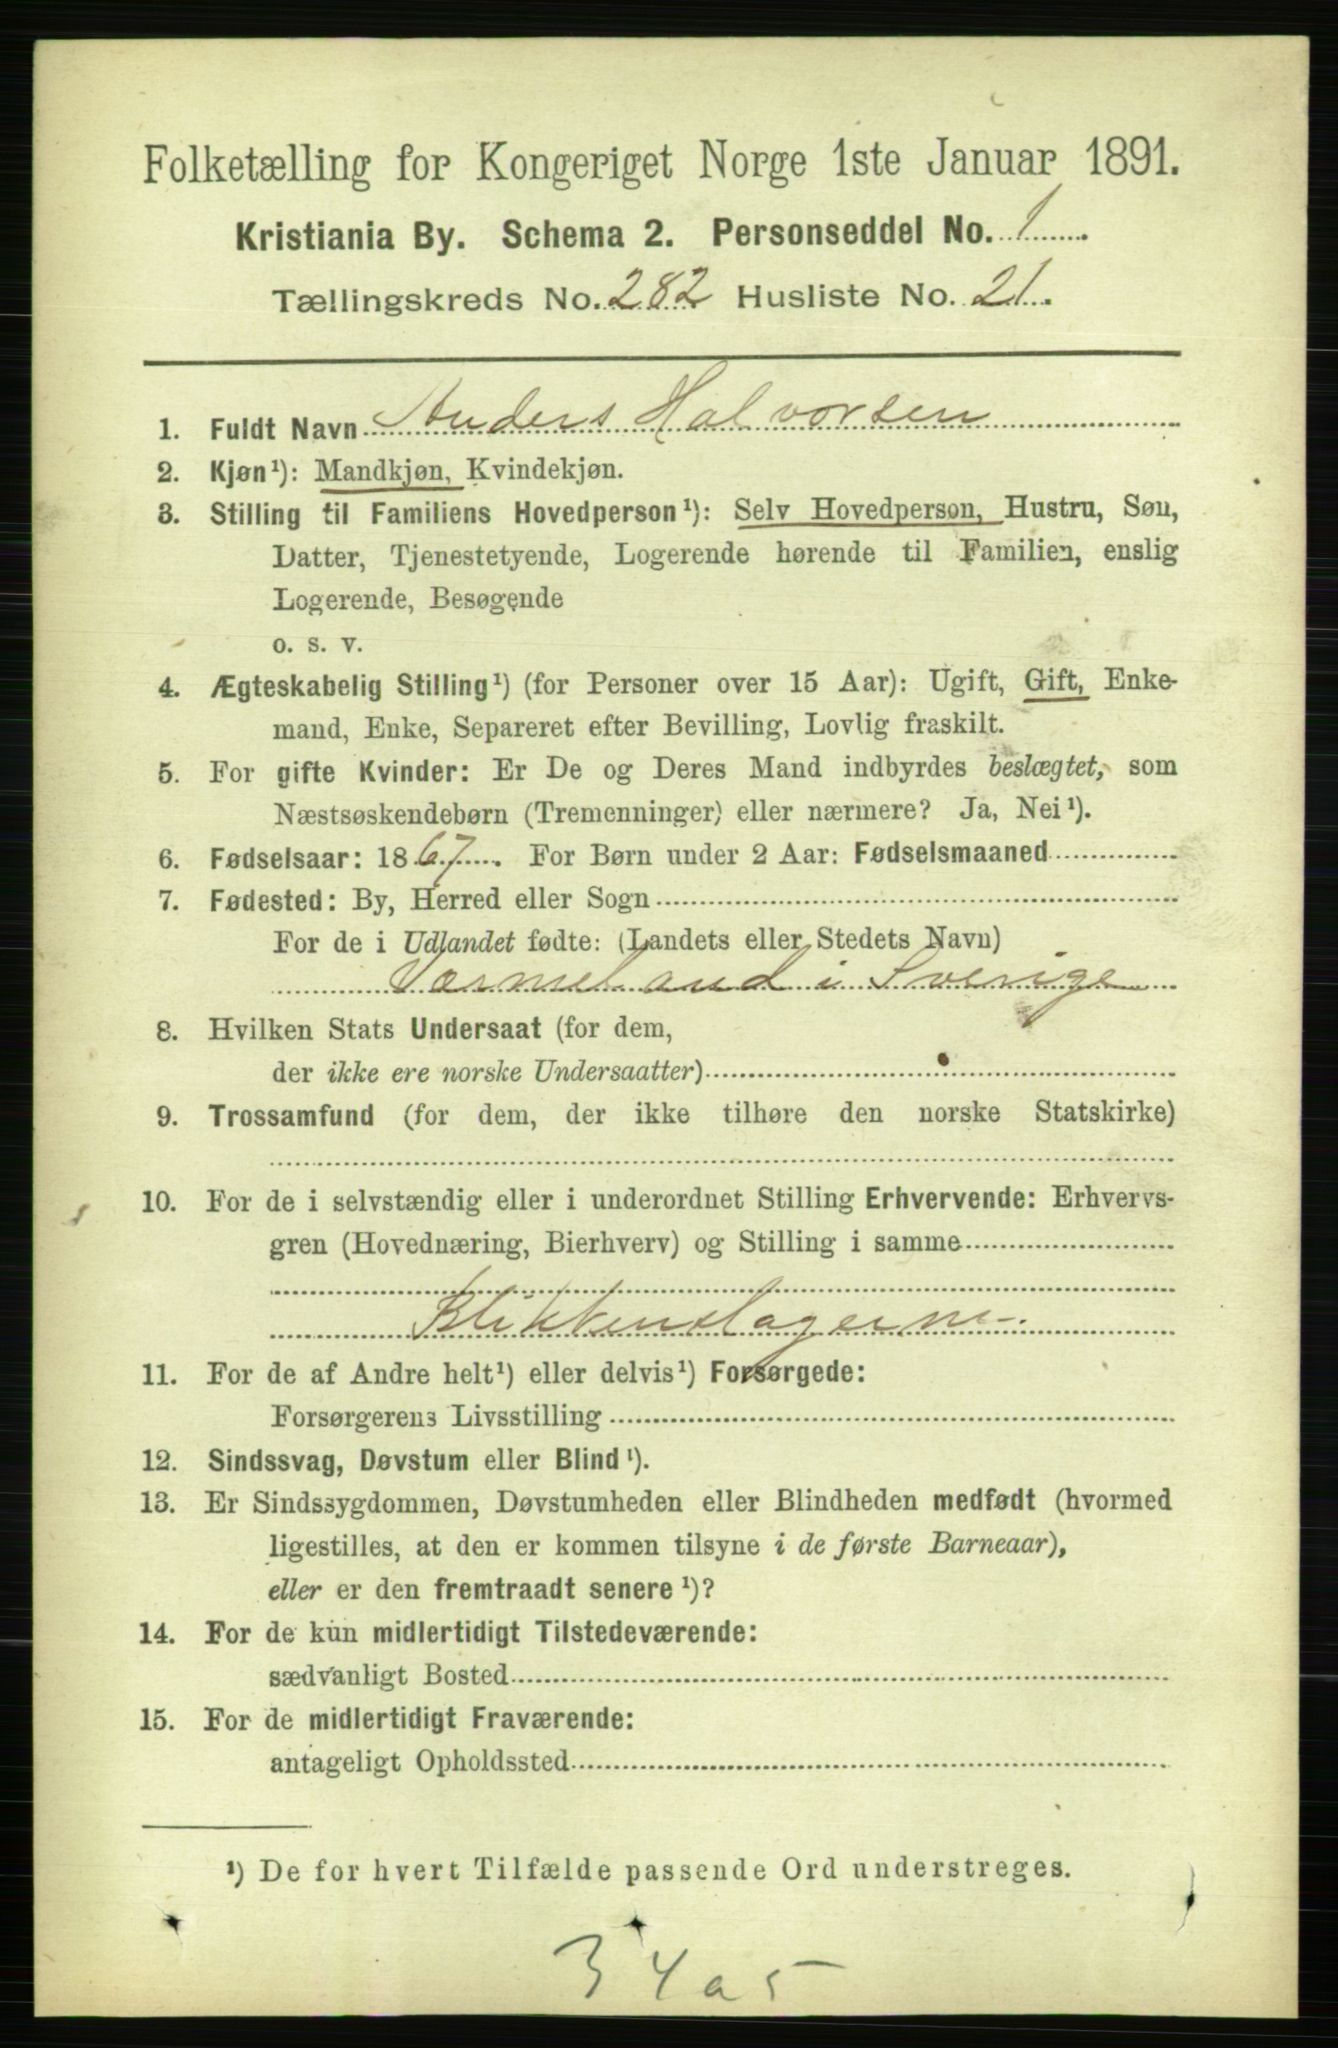 Folketælling for Kongeriget Norge 1ste Januar 1891.
Kristiania By. Schema 2. Personseddel No. 1
Tællingskreds No. 282 Husliste No. 21.
1. Fuldt Navn Anders Halvorsen
2. Kjøn¹): Mandkjøn, Kvindekjøn.
3. Stilling til Familiens Hovedperson¹): Selv Hovedperson, Hustru, Søn,
Datter, Tjenestetyende, Logerende hørende til Familien, enslig
Logerende, Besøgende
o. s. v.
4. Ægteskabelig Stilling¹) (for Personer over 15 Aar): Ugift, Gift, Enke-
mand, Enke, Separeret efter Bevilling, Lovlig fraskilt.
5. For gifte Kvinder: Er De og Deres Mand indbyrdes beslægtet, som
Næstsøskendebørn (Tremenninger) eller nærmere? Ja, Nei¹).
6. Fødselsaar: 1867. For Børn under 2 Aar: Fødselsmaaned
7. Fødested: By, Herred eller Sogn
For de i Udlandet fødte: (Landets eller Stedets Navn)
Værmeland i Sverige
8. Hvilken Stats Undersaat (for dem,
der ikke ere norske Undersaatter)
9. Trossamfund (for dem, der ikke tilhøre den norske Statskirke)
10. For de i selvstændig eller i underordnet Stilling Erhvervende: Erhvervs-
gren (Hovednæring, Bierhverv) og Stilling i samme
11. For de af Andre helt¹) eller delvis¹) Forsørgede:
Forsørgerens Livsstilling
12. Sindssvag, Døvstum eller Blind¹).
13. Er Sindssygdommen, Døvstumheden eller Blindheden medfødt (hvormed
ligestilles, at den er kommen tilsyne i de første Barneaar),
eller er den fremtraadt senere¹)?
14. For de kun midlertidigt Tilstedeværende:
sædvanligt Bosted
15. For de midlertidigt Fraværende:
antageligt Opholdssted
¹) De for hvert Tilfælde passende Ord understreges.
34 a 5